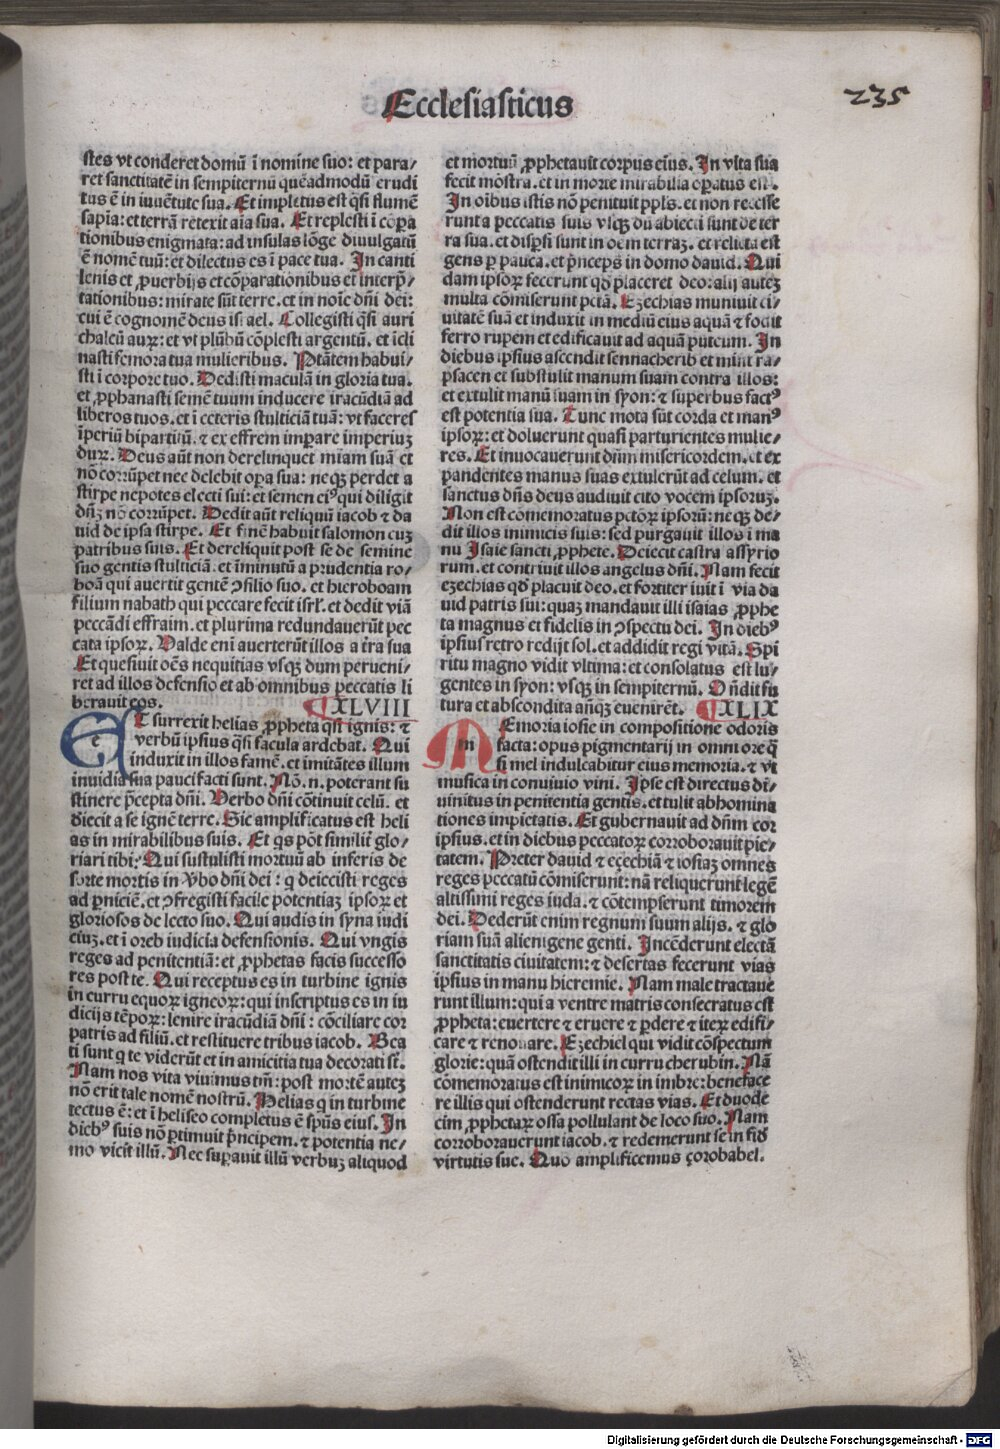 Ecclesiasticus
235
stes vt conderet domū ī nomine suo: et para/
ret sanctitatē in sempiternū quēadmodū erudi
tus ē in iuuētute sua. Et impletus est qsi flumē
sapīa: et terrā retexit aīa sua. Et replesti ī cōpa
tionibus enigmata: ad insulas lōge diuulgatū
ē nomē tuū: et dilectus es ī pace tua. In canti
lenis et ꝓuerbijs et cōparationibus et interp̄/
tationibus: mirate sūt terre. et in noīe dn̄i dei:
cui ē cognomē deus israel. Collegisti qsi auri
chalcū auꝝ: et vt plūbū cōplesti argentū. et īcli
nasti femora tua mulieribus. Ptātem habui/
sti ī corpore tuo. Dedisti maculā in gloria tua.
et ꝓphanasti semē tuum inducere iracūdiā ad
liberos tuos. et ī ceteris stulticiā tuā: vt faceres
īperiū bipartitū. ⁊ ex effrem imꝑare imperiuꝫ
duꝝ. Deus aūt non derelinquet mīam suā et
nō corrūpet nec delebit oꝑa sua: neqꝫ perdet a
stirpe nepotes electi sui: et semen eiꝰ qui diligit
dn̄ꝫ nō corrūpet. Dedit aūt reliquū iacob ⁊ da
uid de ipsa stirpe. Et finē habuit salomon cuꝫ
patribus suis. Et dereliquit post se de semine
suo gentis stulticiā. et īminutū a prudentia ro/
boā qui auertit gentē ꝯsilio suo. et hieroboam
filium nabath qui peccare fecit isrl. et dedit viā
peccādi effraim. et plurima redundauerūt pec
cata ipsoꝝ. Valde enī auerterūt illos a t̄ra sua
Et quesiuit oēs nequitias vsqꝫ dum perueni/
ret ad illos defensio et ab omnibus peccatis li
berauit eos. XLVIII
ET surrexit helias ꝓpheta qsi ignis: ⁊
verbū ipsius qsi facula ardebat. Qui
induxit in illos famē. et imitātes illum
inuidia sua pauci facti sunt. Nō. n. poterant su
stinere p̄cepta dn̄i. Verbo dn̄i cōtinuit celū. et
diecit a se ignē terre. Sic amplificatus est heli
as in mirabilibus suis. Et qs pōt similiť glo/
riari tibi: Qui sustulisti mortuū ab inferis de
sorte mortis in v̓bo dn̄i dei: q deiecisti reges
ad ꝑniciē. et ꝯfregisti facile potentiaꝫ ipsoꝝ et
gloriosos de lecto suo. Qui audis in syna iudi
ciuꝫ. et ī oreb iudicia defensionis. Qui vngis
reges ad penitentiā: et ꝓphetas facis successo
res post te. Qui receptus es in turbine ignis
in curru equoꝝ igneoꝝ: qui inscriptus es in iu
dicijs tēpoꝝ: lenire iracūdiā dn̄i: cōciliare cor
patris ad filiū. et restituere tribus iacob. Bea
ti sunt q te viderūt et in amicitia tua decorati st̄.
Nam nos vita viuimus tm̄: post mortē auteꝫ
nō erit tale nomē nostrū. Helias q in turbine
tectus ē: et ī heliseo completus ē sp̄us eius. In
diebꝰ suis nō ꝑtimuit p̄ncipem. ⁊ potentia ne/
mo vicit illū. Nec suꝑauit illū verbuꝫ aliquod
et mortuū ꝓphetauit corpus eius. In vita sua
fecit mōstra. et in morte mirabilia oꝑatus est.
In oībus istis nō penituit ppls. et non recesse
runt a peccatis suis vsqꝫ dū abiecti sunt de ter
ra sua. et disꝑsi sunt in oēm terraꝫ. et relicta est
gens ꝑ pauca. et p̄nceps in domo dauid. Qui
dam ipsoꝝ fecerunt qd̓ placeret deo: alij auteꝫ
multa cōmiserunt pctā. Ezechias muniuit ci/
uitatē suā et induxit in mediū eius aquā ⁊ fodit
ferro rupem et edificauit ad aquā puteum. In
diebus ipsius ascendit sennacherib et misit ra/
psacen et substulit manum suam contra illos:
et extulit manū suam in syon: ⁊ superbus factꝰ
est potentia sua. Tunc mota sūt corda et manꝰ
ipsoꝝ: et doluerunt quasi parturientes mulie/
res. Et inuocauerunt dn̄m misericordem. et ex
pandentes manus suas extulerūt ad celum. et
sanctus dn̄s deus audiuit cito vocem ipsoruꝫ.
Non est cōmemoratus pctōꝝ ipsorū: neqꝫ de/
dit illos inimicis suis: sed purgauit illos ī ma
nu Isaie sancti ꝓphete. Deiecit castra assyrio
rum. et contriuit illos angelus dn̄i. Nam fecit
ezechias qd̓ placuit deo. et fortiter iuit ī via da
uid patris sui: quaꝫ mandauit illi isaias ꝓphe
ta magnus et fidelis in ꝯspectu dei. In diebꝰ
ipsius retro redijt sol. et addidit regi vitā. Spi
ritu magno vidit vltima: et consolatus est lu/
gentes in syon: vsqꝫ in sempiternū. Ostendit fu
tura et abscondita anteqꝫ euenirēt. XLIX
MEmoria iosie in compositione odoris
facta: opus pigmentarij in omni ore q
si mel indulcabitur eius memoria. ⁊ vt
musica in conuiuio vini. Ipse est directus di/
uinitus in penitentia gentis. et tulit abhomina
tiones impietatis. Et gubernauit ad dn̄m cor
ipsius. et in diebus peccatoꝝ corroborauit pie/
tatem. Preter dauid ⁊ eçechiā ⁊ iosiaꝫ omnes
reges peccatū cōmiserunt: nā reliquerunt legē
altissimi reges iuda. ⁊ cōtempserunt timorem
dei. Dederūt enim regnum suum alijs. ⁊ glo
riam suā alienigene genti. Incēderunt electā
sanctitatis ciuitatem: ⁊ desertas fecerunt vias
ipsius in manu hieremie. Nam male tractaue
runt illum: qui a ventre matris consecratus est
ꝓpheta: euertere ⁊ eruere ⁊ ꝑdere ⁊ iteꝝ edifi/
care ⁊ renouare. Ezechiel qui vidit cōspectum
glorie: quā ostendit illi in curru cherubin. Nā
cōmemoratus est inimicoꝝ in imbre: beneface
re illis qui ostenderunt rectas vias. Et duode
cim ꝓphetaꝝ ossa pollulant de loco suo. Nam
corroborauerunt iacob. ⁊ redemerunt se in fid̓
virtutis sue. Quō amplificemus çorobabel.
Digitalisierung gefördert durch die Deutsche Forschungsgemeinschaft - DFG